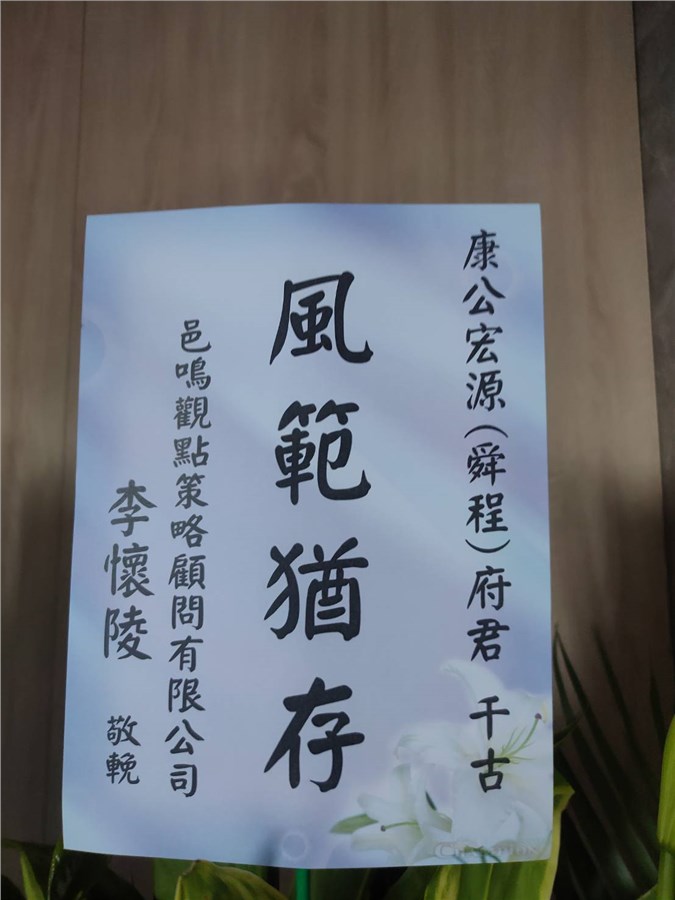 康公宏源(舜程)府君 千古
風範猶存
邑鳴觀點策略顧問有限公司
李懷陵 敬輓